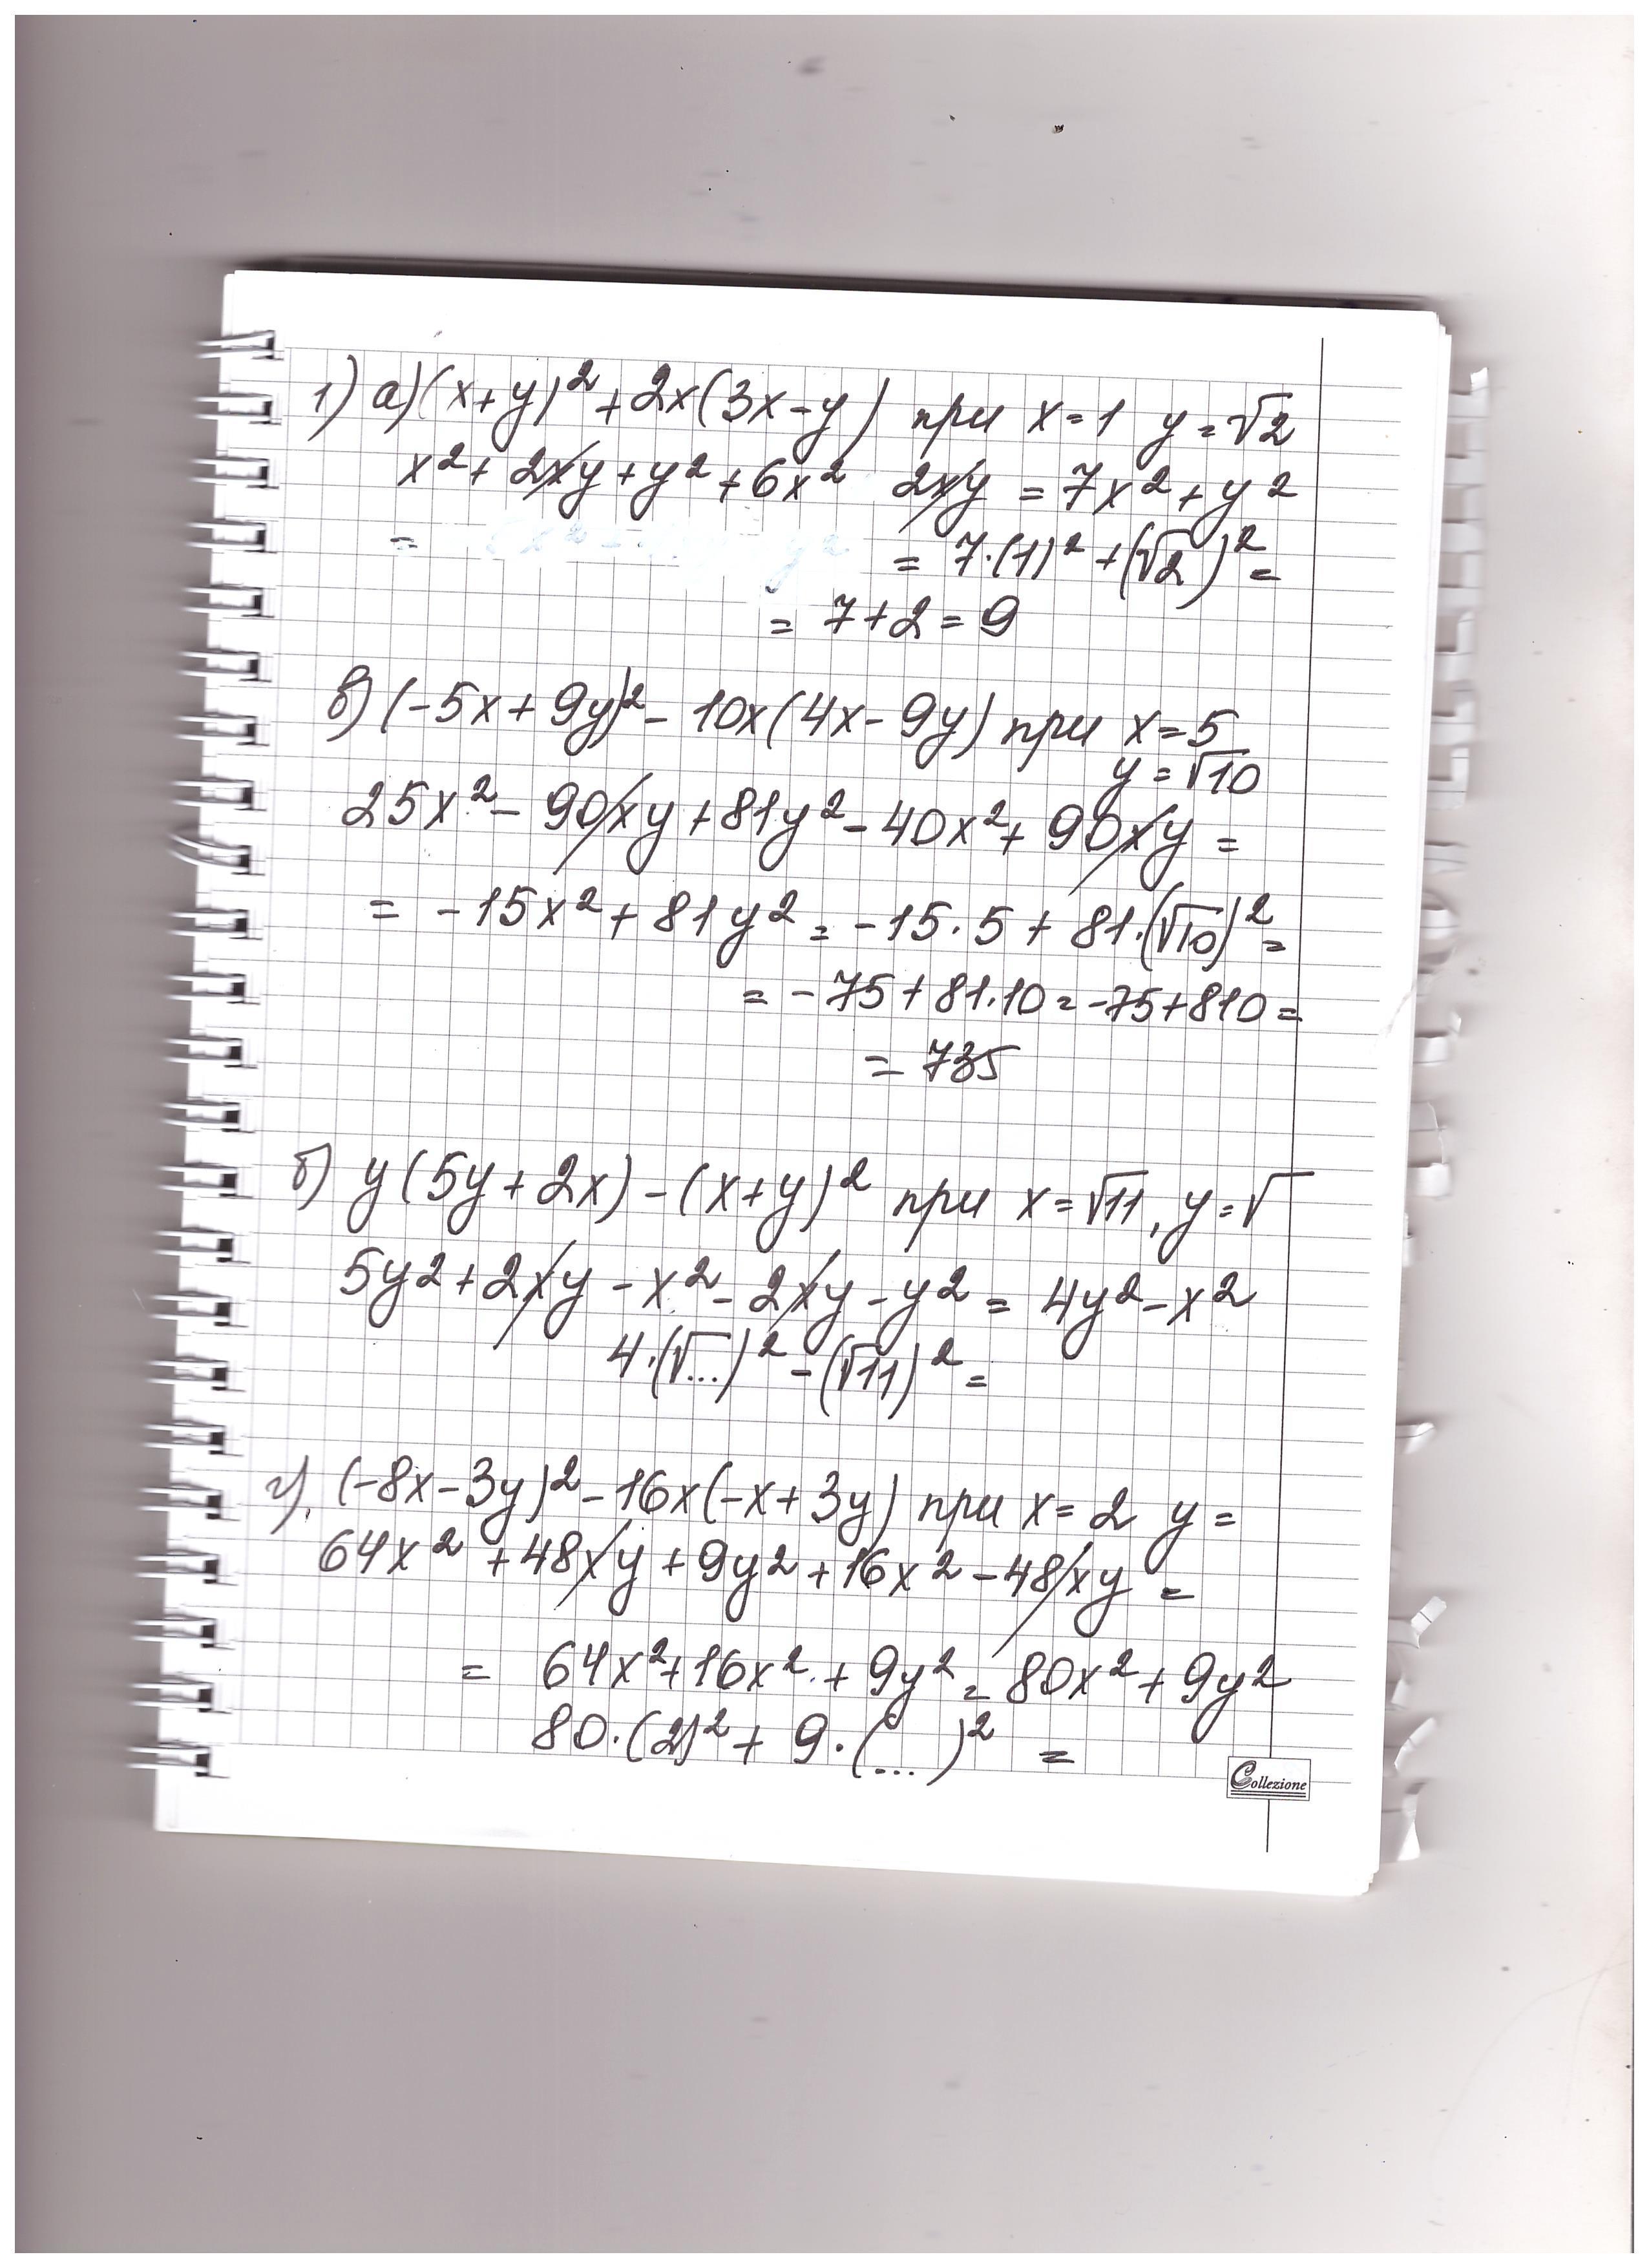 1) а) (x+y)² + 2x(3x-y) при x=1 y=√2
x² + 2xy + y² + 6x² 2xy = 7x² + y²
= = 7·(1)² + (√2)² =
= 7+2 = 9
в) (-5x+9y)² - 10x(4x-9y) при x=5
y=√10
25x² - 90xy + 81y² - 40x² + 90xy =
= -15x² + 81y² = -15·5 + 81·(√10)² =
= -75 + 81·10 = -75+810 =
= 735
б) y(5y+2x) - (x+y)² при x=√11, y=√
5y² + 2xy - x² - 2xy - y² = 4y² - x²
4·(√...)² - (√11)² =
г). (-8x-3y)² - 16x(-x+3y) при x=2 y=
64x² + 48xy + 9y² + 16x² - 48xy =
= 64x² + 16x² + 9y² = 80x² + 9y²
80·(2)² + 9·(...)² =
Collezione